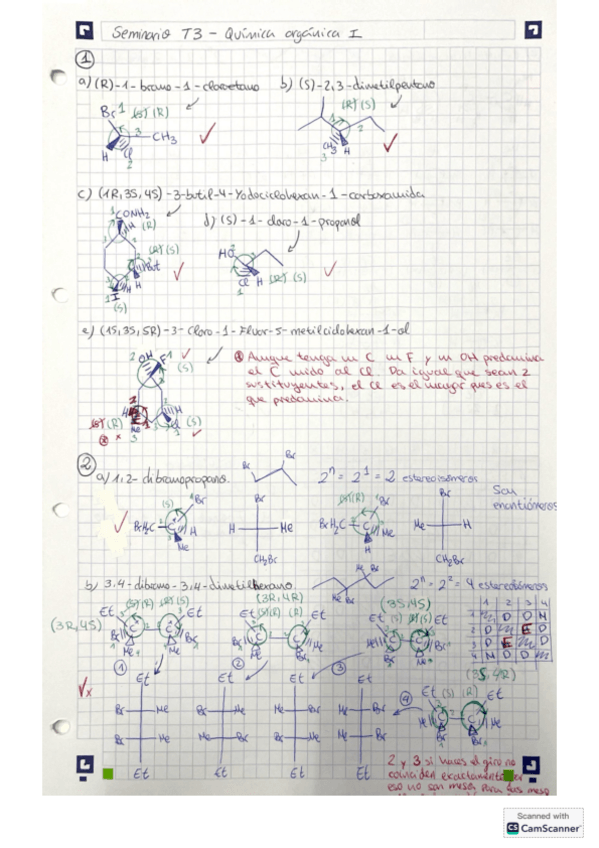 Seminario T3 - Química orgánica I
1
a) (R)-1-bromo-1-cloroetano b) (S)-2,3-dimetilpentano
Br 1 (S) (R)
(R) (S)
3 CH3
H Cl
2
CH3 H
c) (1R,3S,4S)-3-butil-4-Yodociclohexan-1-carboxamida
CONH2
H (R)
d) (S)-1-cloro-1-propanol
(R) (S)
But
HO
Cl H (R) (S)
I H
(S)
e) (1S,3S,5R)-3-Cloro-1-Fluor-5-metilciclohexan-1-ol
2 OH F 1
(S)
Aunque tenga un C un F y un OH predomina
el C unido al Cl. Da igual que sean 2
sustituyentes, el Cl es el mayor pues es el
que predomina.
(S) (R)
Me
Cl (S)
2
a) 1,2-dibromopropano.
Br
Br
2^n = 2^1 = 2 estereoisómeros
Son
enantiómeros
(S)
Br
BrH2C C H
Me
Br
H Me
CH2Br
(S)(R)
Br
BrH2C C Me
H
Br
Me H
CH2Br
b) 3,4-dibromo-3,4-dimetilhexano.
Br
Me Br
2^n = 2^2 = 4 estereoisómeros
(3R,4S)
(3R,4R)
(3S,4S)
(3S,4R)
1 2 3 4
1 m D D N
2 D m E D
3 D E m D
4 N D D m
1
2
3
4
Et Et Et Et
Br Me Br Me Me Br Me Br
Br Me Me Br Br Me Me Br
Et Et Et Et
2 y 3 si haces el giro no
coinciden exactamente por
eso no son meso, para ser meso
Scanned with
CS CamScanner